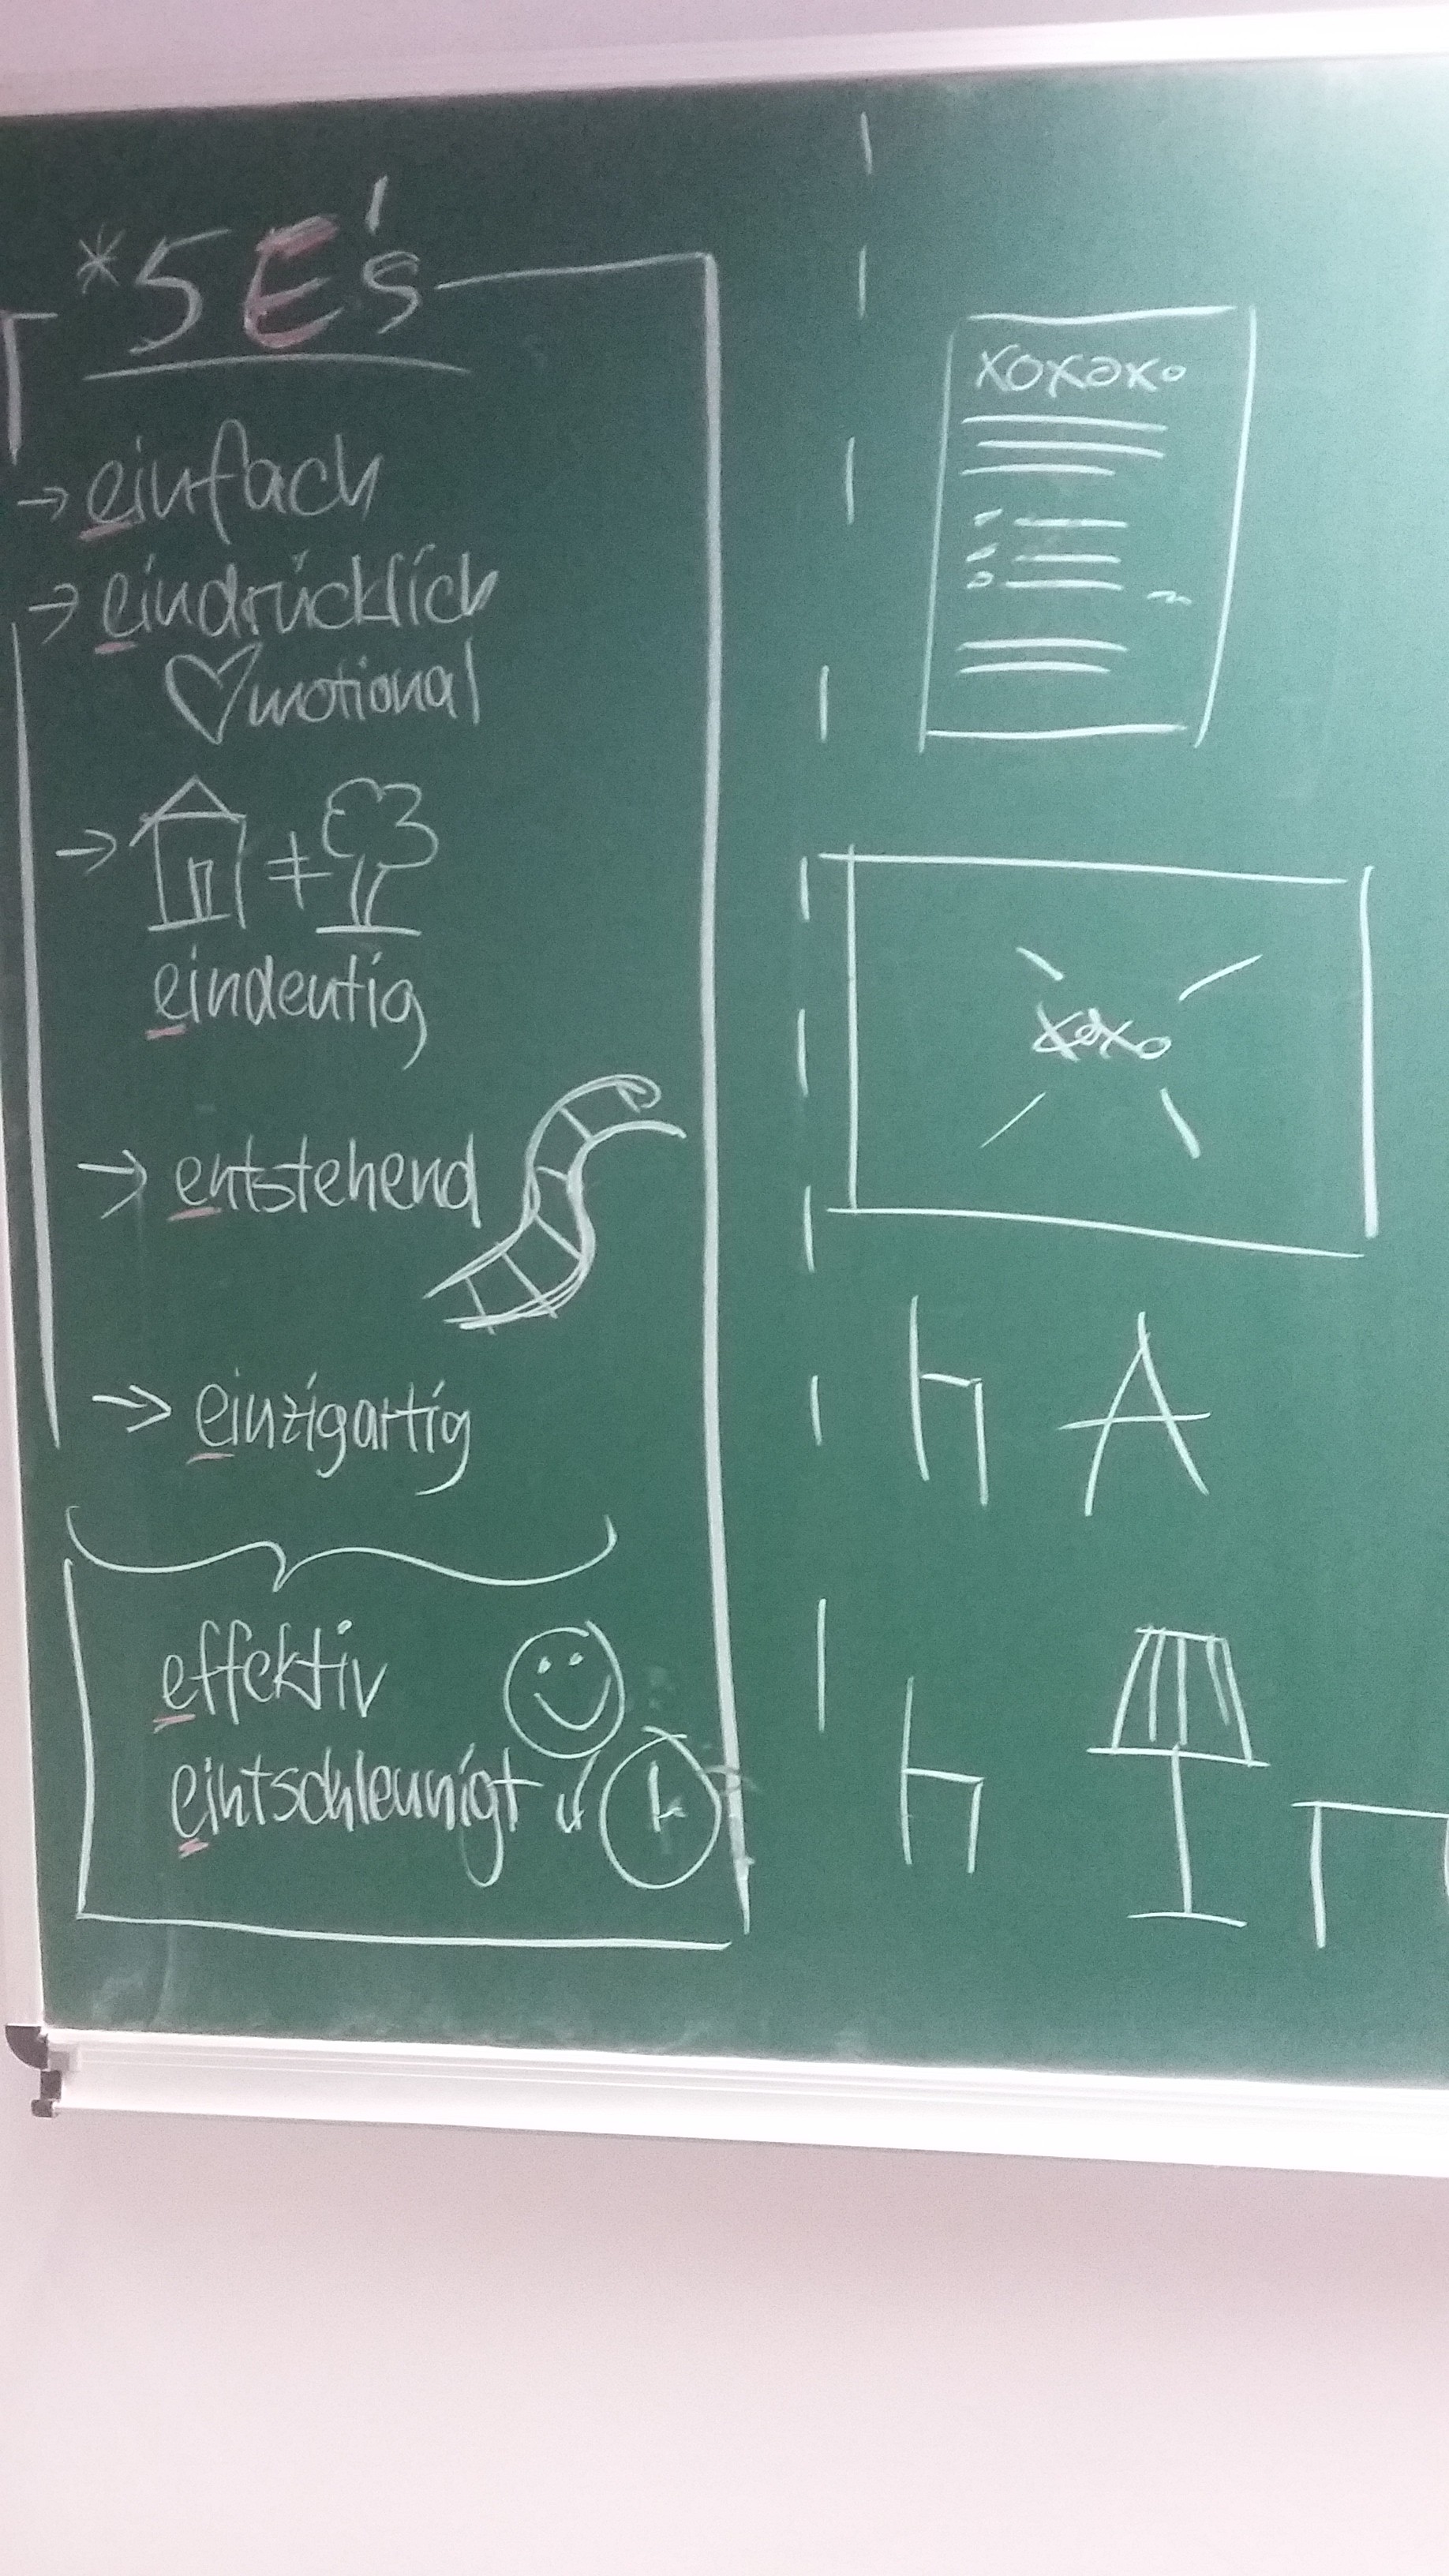 *5 E's
→ einfach
→ eindrücklich
♡motional
→ ≠
eindeutig
→ entstehend
→ einzigartig
effektiv
eintschleunigt
xoxoxo
xoxo